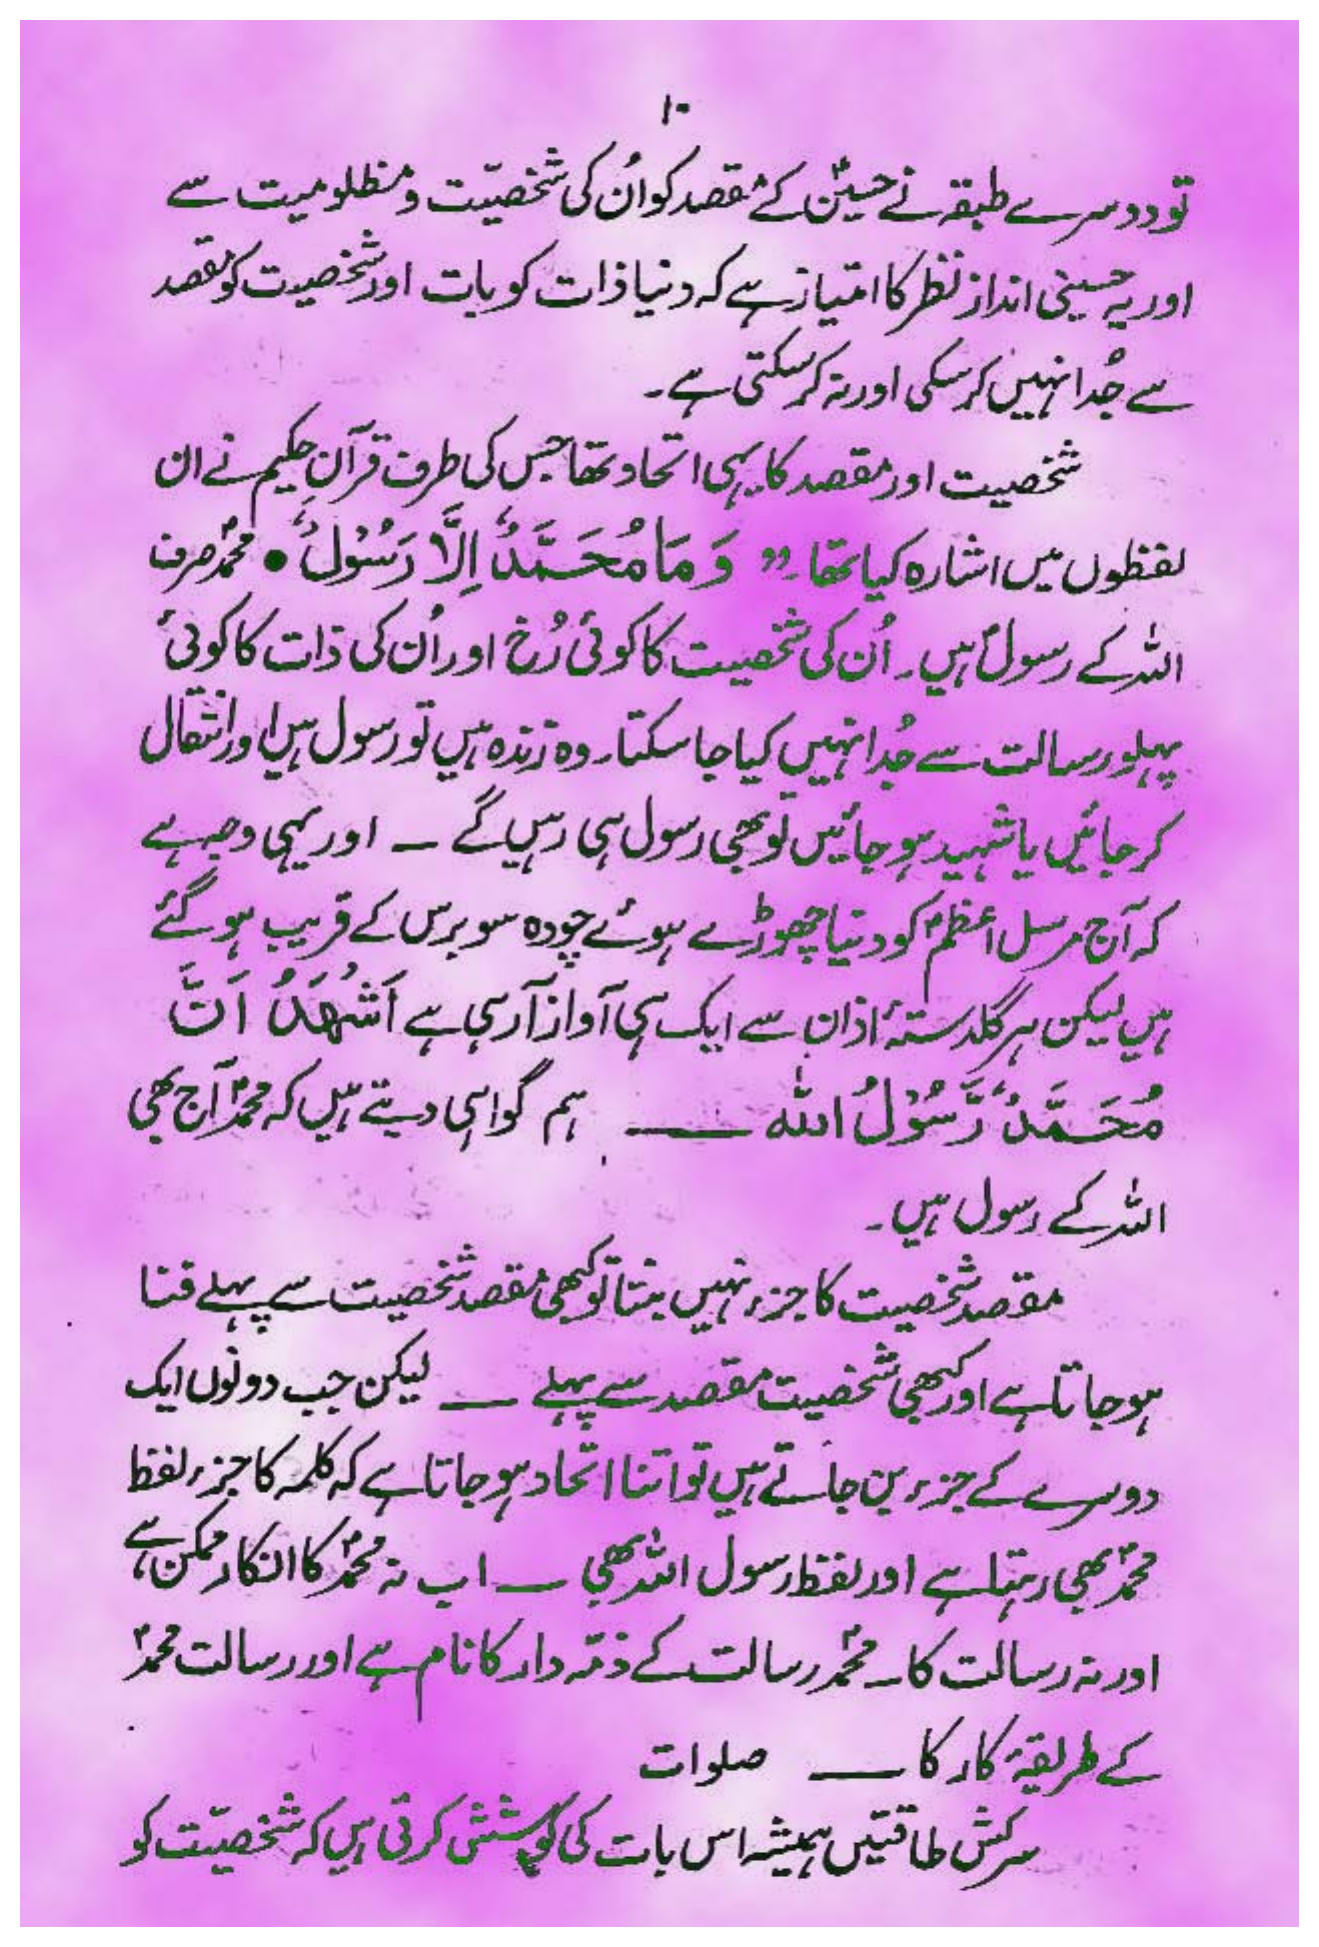 ۱۰
تو دوسرے طبقہ نے حسینؑ کے مقصد کو اُن کی شخصیّت و مظلومیت سے
اور یہ حسینی انداز نظر کا امتیاز ہے کہ دنیا ذات کو بات اور شخصیت کو مقصد
سے جُدا نہیں کر سکی اور نہ کر سکتی ہے۔
شخصیت اور مقصد کا یہی اتحاد تھا جس کی طرف قرآنِ حکیم نے ان
لفظوں میں اشارہ کیا تھا۔ ” وَمَا مُحَمَّدٌ اِلَّا رَسُوْلٌ • محمدؐ صرف
اللہ کے رسولؐ ہیں۔ اُن کی شخصیت کا کوئی رُخ اور اُن کی ذات کا کوئی
پہلو رسالت سے جُدا نہیں کیا جا سکتا۔ وہ زندہ ہیں تو رسول ہیں اور انتقال
کر جائیں یا شہید ہو جائیں تو بھی رسول ہی رہیں گے ـ اور یہی وجہ ہے
کہ آج مرسل اعظمؐ کو دنیا چھوڑے ہوئے چودہ سو برس کے قریب ہو گئے
ہیں لیکن ہر گلدستۂ اذان سے ایک ہی آواز آ رہی ہے اَشْهَدُ اَنَّ
مُحَمَّدٌ رَّسُوْلُ اللہ ـــ ہم گواہی دیتے ہیں کہ محمدؐ آج بھی
اللہ کے رسول ہیں۔
مقصد شخصیت کا جزء نہیں بنتا تو کبھی مقصد شخصیت سے پہلے فنا
ہو جاتا ہے اور کبھی شخصیت مقصد سے پہلے ـــ لیکن جب دونوں ایک
دوسرے کے جزء بن جاتے ہیں تو اتنا اتحاد ہو جاتا ہے کہ کلمہ کا جزء لفظ
محمدؐ بھی رہتا ہے اور لفظ رسول اللہ بھی ـــ اب نہ محمدؐ کا انکار ممکن ہے
اور نہ رسالت کا۔ محمدؐ رسالت کے ذمّہ دار کا نام ہے اور رسالت محمدؐ
کے طریقۂ کار کا ـــ صلوات
سرکش طاقتیں ہمیشہ اس بات کی کوشش کرتی ہیں کہ شخصیّت کو